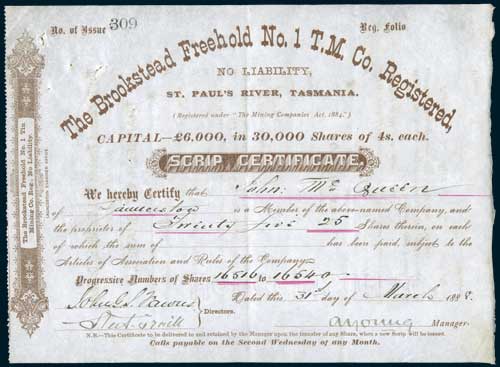 No. of Issue 309
Reg. Folio
The Brookstead Freehold No. 1 T.M. Co. Registered,
NO LIABILITY,
ST. PAUL'S RIVER, TASMANIA.
(Registered under "The Mining Companies Act, 1884.")
CAPITAL—£6,000, in 30,000 Shares of 4s. each.
SCRIP CERTIFICATE.
We hereby Certify that John McQueen
of Launceston is a Member of the above-named Company, and
the proprietor of Twenty five 25 Shares therein, on each
of which the sum of has been paid, subject to the
Articles of Association and Rules of the Company.
Progressive Numbers of Shares 16516 to 16540
Dated this 31st day of March 188
Directors.
AYoung Manager.
N.B.—This Certificate to be delivered to and retained by the Manager upon the transfer of any Share, when a new Scrip will be issued.
Calls payable on the Second Wednesday of any Month.
The Brookstead Freehold No. 1 Tin
Mining Co. Reg., No Liability.